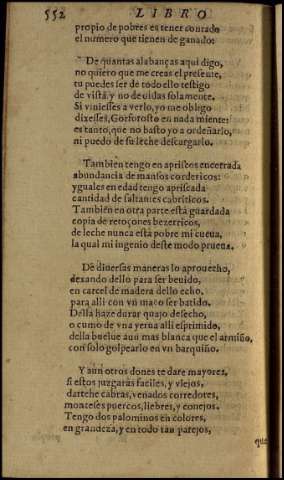 552 LIBRO
propio de pobres es tener contado
el numero que tienen de ganado:
De quantas alabanças aqui digo,
no quiero que me creas el presente,
tu puedes ser de todo ello testigo
de vista, y no de oidas solamente.
Si viniesses a verlo, yo me obligo
dixesses, Gorforosto en nada miente:
es tanto, que no basto yo a ordeñarlo,
ni puedo de su leche descargarlo.
Tambien tengo en apriscos encerrada
abundancia de mansos cordericos:
yguales en edad tengo apriscada
cantidad de saltantes cabriticos.
Tambien en otra parte està guardada
copia de retoçones bezerricos,
de leche nunca està pobre mi cueua,
la qual mi ingenio deste modo prueua.
De diuersas maneras lo aprouecho,
dexando dello para ser beuido,
en carcel de madera dello echo,
para alli con vn maço ser batido.
Della haze durar quajo desecho,
o cumo de vna yerua alli esprimido,
della buelue aun mas blanca que el armiño,
con solo golpearlo en vn barquiño.
Y aun otros dones te dare mayores,
si estos juzgaràs faciles, y viejos,
dartehe cabras, venados corredores,
monteses puercos, liebres, y conejos.
Tengo dos palominos en colores,
en grandeza, y en todo tan parejos,
que